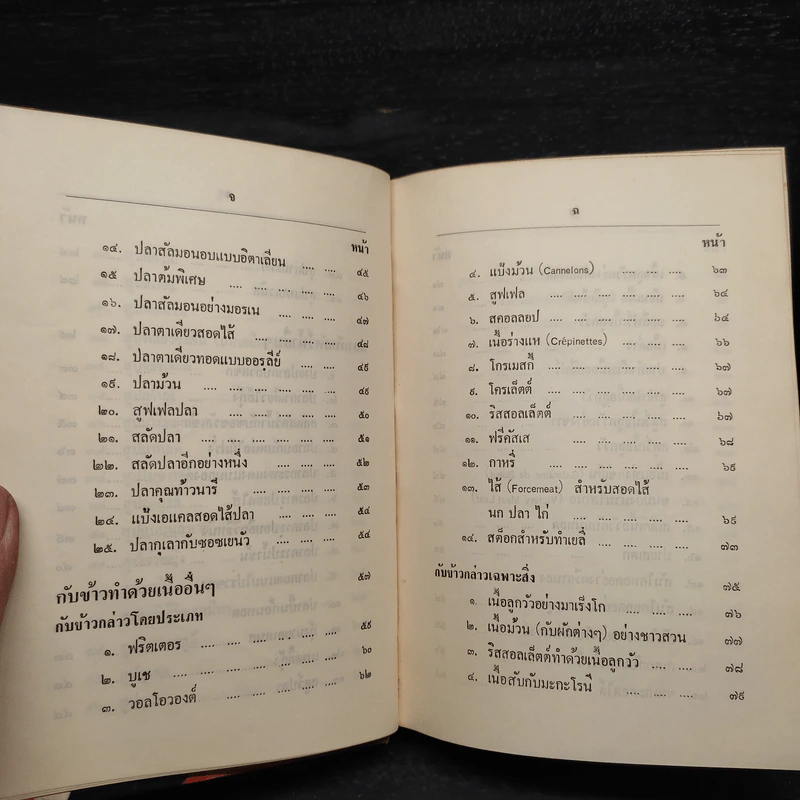 จ
หน้า
๑๔. ปลาสัลมอนอบแบบอิตาเลียน .... .... ๔๕
๑๕ ปลาต้มพิเศษ .... .... .... .... ๔๖
๑๖. ปลาสัลมอนอย่างมอรเน .... .... ๔๗
๑๗. ปลาตาเดียวสอดไส้ .... .... .... ๔๘
๑๘. ปลาตาเดียวทอดแบบออรฺลีย์ .... .... ๔๙
๑๙. ปลาม้วน .... .... .... .... .... ๔๙
๒๐. สูฟเฟลปลา .... .... .... .... ๕๐
๒๑. สลัดปลา .... .... .... .... .... ๕๑
๒๒. สลัดปลาอีกอย่างหนึ่ง .... .... .... ๕๒
๒๓. ปลาคุณท้าวนารี .... .... .... ๕๓
๒๔. แป้งเอแคลสอดไส้ปลา .... .... .... ๕๔
๒๕. ปลากุเลากับซอซเยนัว .... .... .... ๕๔
กับข้าวทำด้วยเนื้ออื่นๆ ๕๗
กับข้าวกล่าวโดยประเภท
๑. ฟริตเตอร .... .... .... .... ๕๙
๒. บูเช .... .... .... .... .... ๖๐
๓. วอลโอวองต์ .... .... .... .... ๖๒
ฉ
หน้า
๔. แป้งม้วน (Cannelons) .... .... .... ๖๓
๕. สูฟเฟล .... .... .... .... .... ๖๔
๖. สคอลลอป .... .... .... .... .... ๖๕
๗. เนื้อร่างแห (Crépinettes) .... .... .... ๖๖
๘. โกรเมสกี้ .... .... .... .... .... ๖๗
๙. โครเล็ตต์ .... .... .... .... .... ๖๗
๑๐. ริสสอลเล็ตต์ .... .... .... .... ๖๗
๑๑. ฟรีคัสเส .... .... .... .... .... ๖๘
๑๒. กาหรี่ .... .... .... .... .... ๖๙
๑๓. ไส้ (Forcemeat) สำหรับสอดไส้
นก ปลา ไก่ .... .... .... .... ๖๙
๑๔. สต็อกสำหรับทำเยลี่ .... .... .... ๗๓
กับข้าวกล่าวเฉพาะสิ่ง ๗๕
๑. เนื้อลูกวัวอย่างมาเร็งโก .... .... .... ๗๖
๒. เนื้อม้วน (กับผักต่างๆ) อย่างชาวสวน ๗๗
๓. ริสสอลเล็ตต์ทำด้วยเนื้อลูกวัว .... .... ๗๘
๔. เนื้อสับกับมะกะโรนี .... .... .... ๗๙